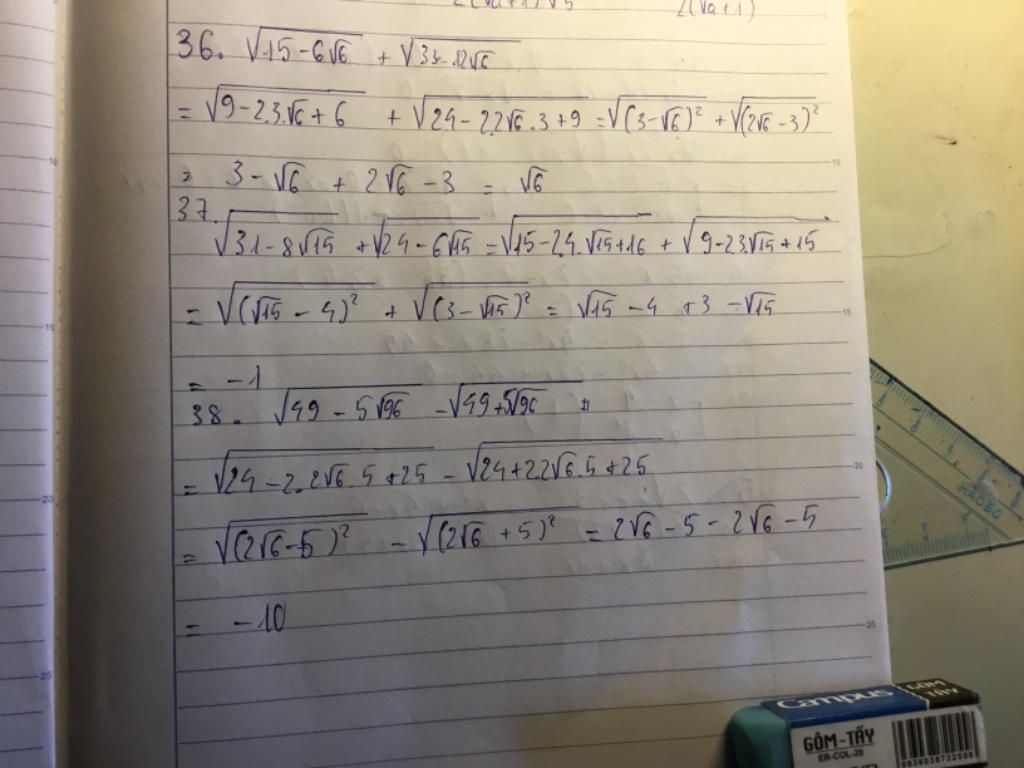 2(√a+1)√5 2(√a+1)
36. √(15-6√6) + √(33-12√6)
= √(9-2.3.√6+6) + √(24-2.2√6.3+9) = √(3-√6)² + √(2√6-3)²
= 3-√6 + 2√6-3 = √6
37.
√(31-8√15) + √(24-6√15) = √(15-2.4.√15+16) + √(9-2.3√15+15)
= √(√15-4)² + √(3-√15)² = √15-4+3-√15
= -1
38. √(49-5√96) - √(49+5√96) =
= √(24-2.2√6.5+25) - √(24+2.2√6.5+25)
= √(2√6-5)² - √(2√6+5)² = 2√6-5-2√6-5
= -10
Campus
GÔM-TẨY
ER-COL-20
GÔM
TẨY
10
15
20
25
10
15
20
25